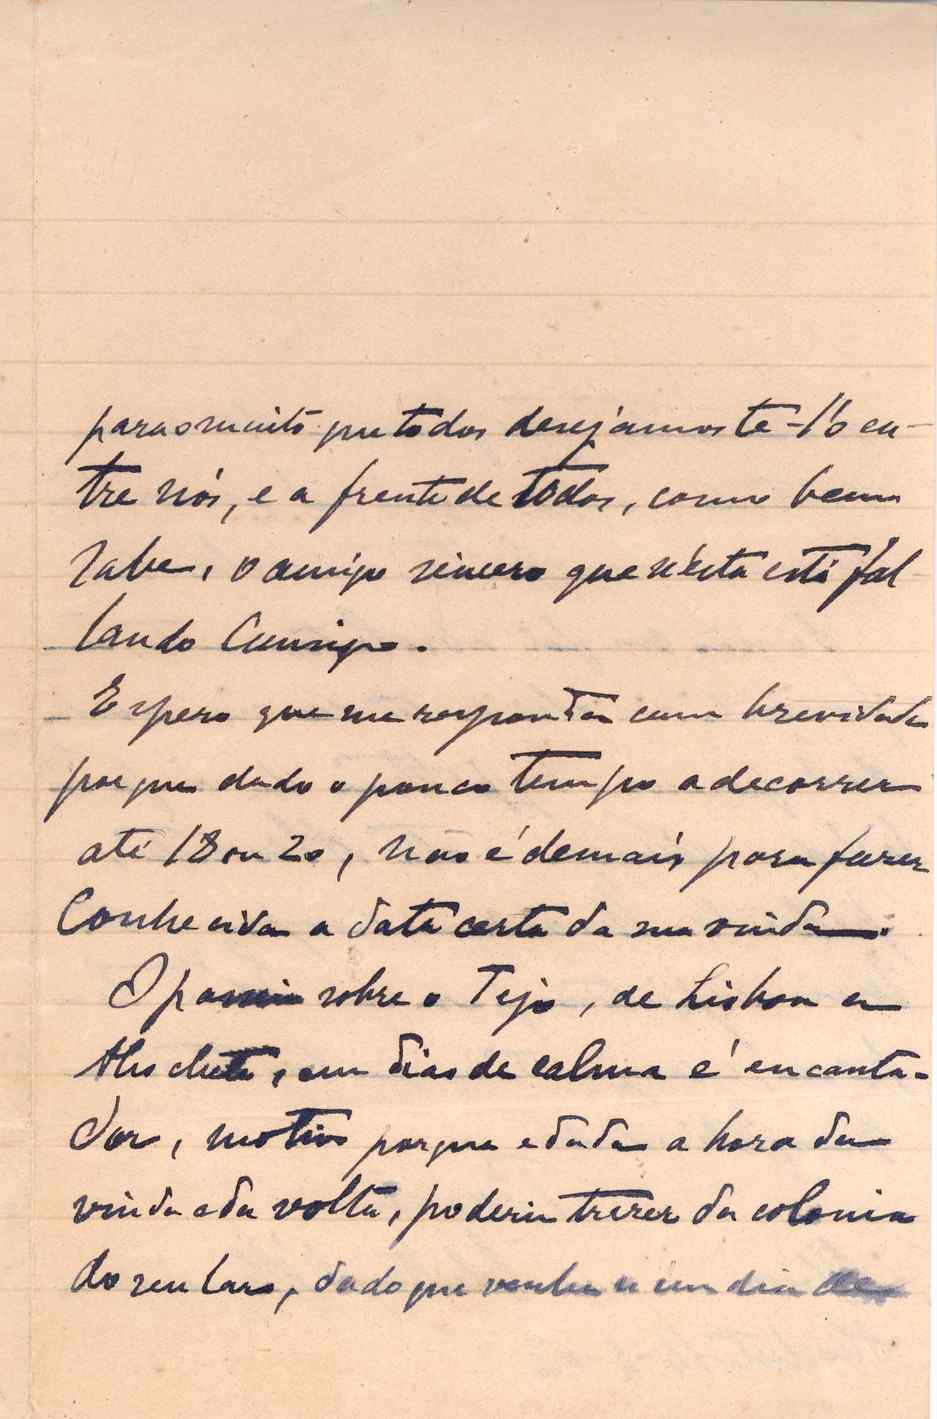 para o muito que todos desejamos te-l'o en-
tre nós, e a frente de todos, como bem
sabe, o amigo sincero que n'ésta está fal
lando Comsigo.
Espero que me responda com brevidade
porque dado o pouco tempo a decorrer
até 18 ou 20, não é demais para fazer
Conhecida a data certa da sua vinda.
O passeio sobre o Tejo, de Lisboa a
Alcochete, em dias de calma é encanta-
dor, motivo porque e dada a hora da
vinda e da volta, poderia trazer da colonia
do seu lar, dado que venha n'um dia de